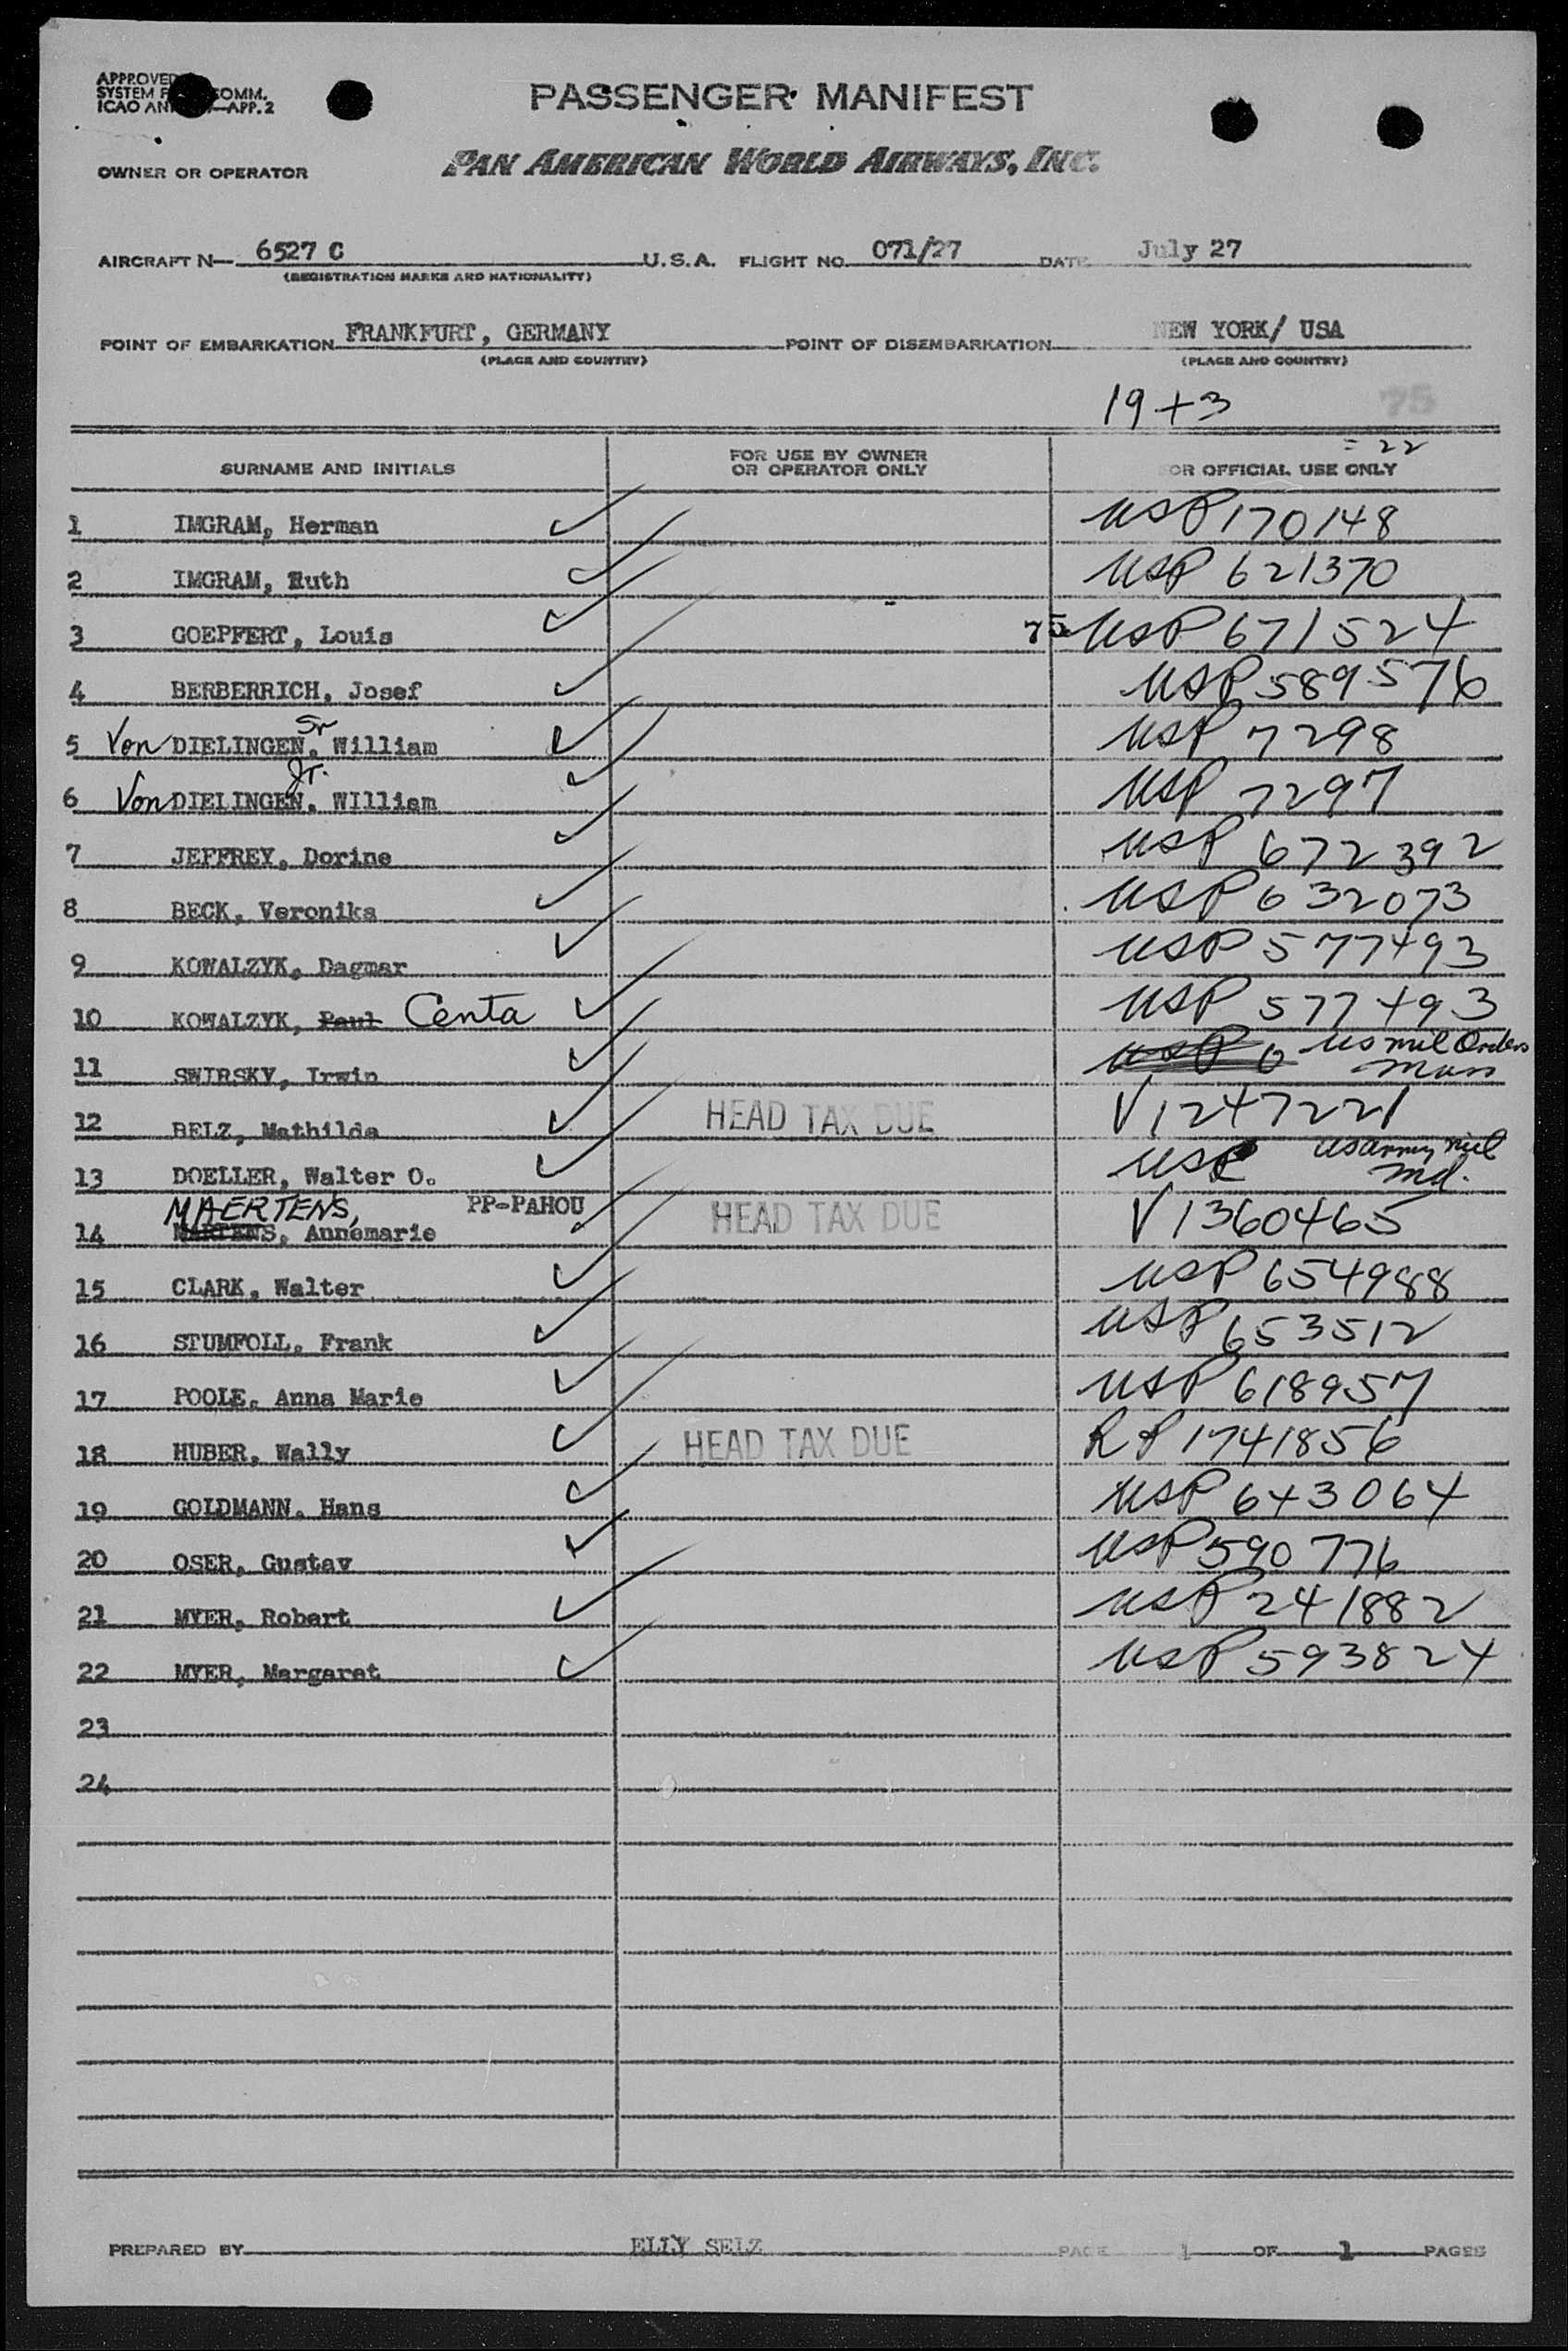 APPROVED
SYSTEM COMM.
ICAO APP. 2
PASSENGER MANIFEST
OWNER OR OPERATOR PAN AMERICAN WORLD AIRWAYS, INC.
AIRCRAFT N— 6527 C U.S.A. FLIGHT NO. 071/27 DATE July 27
(REGISTRATION MARKS AND NATIONALITY)
POINT OF EMBARKATION FRANKFURT, GERMANY POINT OF DISEMBARKATION NEW YORK/ USA
(PLACE AND COUNTRY) (PLACE AND COUNTRY)
19 + 3 75
= 22
SURNAME AND INITIALS FOR USE BY OWNER OR OPERATOR ONLY FOR OFFICIAL USE ONLY
1 IMGRAM, Herman ✓ USP 170148
2 IMGRAM, Ruth ✓ USP 621370
3 GOEPFERT, Louis ✓ 75 USP 671524
4 BERBERRICH, Josef ✓ USP 589576
5 Von DIELINGEN, Sr William ✓ USP 7298
6 Von DIELINGEN, Jr. WIlliam ✓ USP 7297
7 JEFFREY, Dorine ✓ USP 672392
8 BECK, Veronika ✓ USP 632073
9 KOWALZYK, Dagmar ✓ USP 577493
10 KOWALZYK, Paul Centa ✓ USP 577493
11 SWIRSKY, Irwin ✓ USP 0 US mil Orders
Mass
12 BELZ, Mathilde ✓ HEAD TAX DUE V1247221
13 DOELLER, Walter O. ✓ USC US army mil
Md.
MAERTENS, PP-PAHOU
14 MARTENS, Annemarie ✓ HEAD TAX DUE V1360465
15 CLARK, Walter ✓ USP 654988
16 STUMFOLL, Frank ✓ USP 653512
17 POOLE, Anna Marie ✓ USP 618957
18 HUBER, Wally ✓ HEAD TAX DUE RP 1741856
19 GOLDMANN, Hans ✓ USP 643064
20 OSER, Gustav ✓ USP 590776
21 MYER, Robert ✓ USP 241882
22 MYER, Margaret ✓ USP 593824
23
24
PREPARED BY ELLY SELZ PAGE 1 OF 1 PAGES